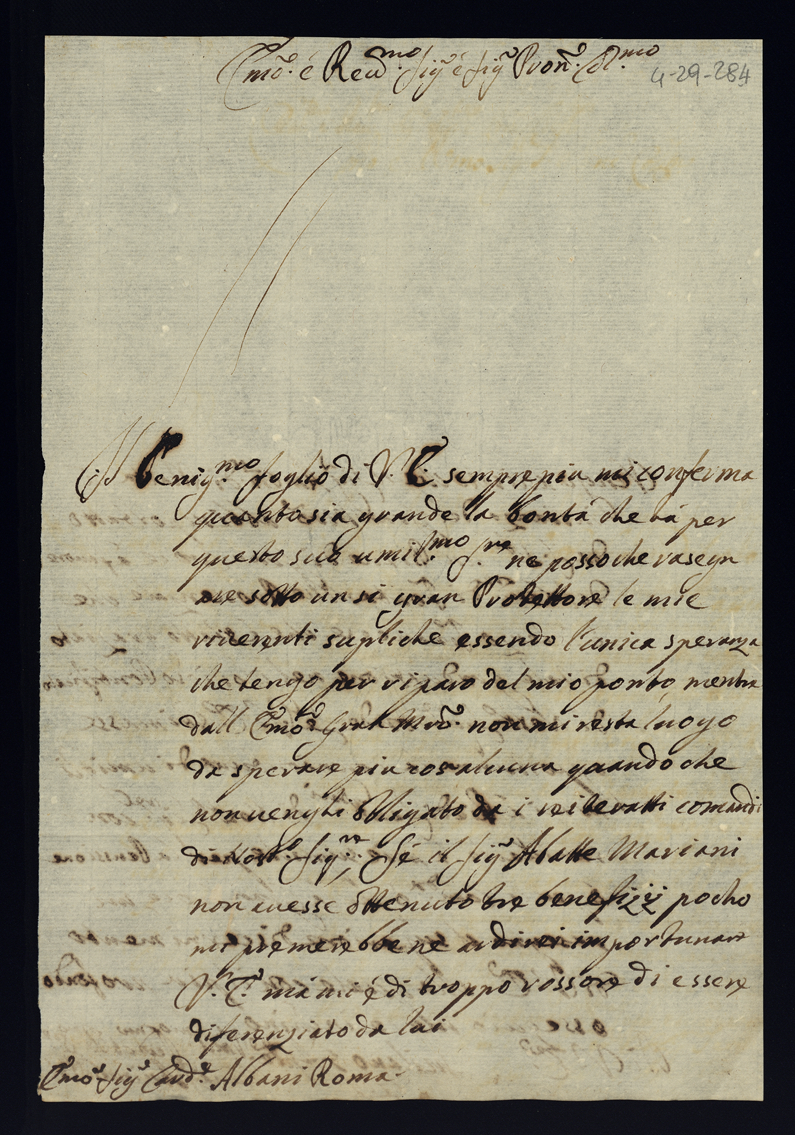 Em.º é Reu.mo Sig.r é Sig.r Pron. Col.mo
4-29-284
Il Benig.mo foglio di V. E. sempre piu mi conferma
quanto sia grande la bontá che há per
questo suo umil.mo Sre ne posso che rasegn
are sotto un si gran Protettore le mie
riverenti supliche essendo l'unica speranza
che tengo per riparo del mio ponto mentre
dall Em.º Gran Mro. non mi resta luogo
da sperare piu cosa alcuna quando che
non venghi obligato da i reiteratti comandi
di Nos.º Sig.re, Sé il Sig.r Abatte Mariani
non avesse ottenuto tre benefizij pocho
mi premerebbe ne ardirei importunare
V. E. má mi é di troppo rossore di essere
diferenziato da lui
Em.º Sig.r Card.e Albani Roma.